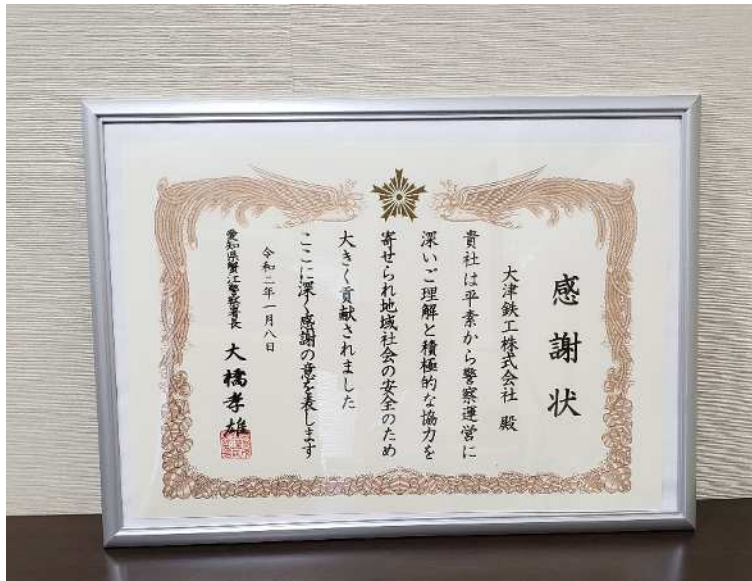 感謝状
大津鉄工株式会社 殿
貴社は平素から警察運営に
深いご理解と積極的な協力を
寄せられ地域社会の安全のため
大きく貢献されました
ここに深く感謝の意を表します
令和二年一月八日
愛知県蟹江警察署長 大橋孝雄